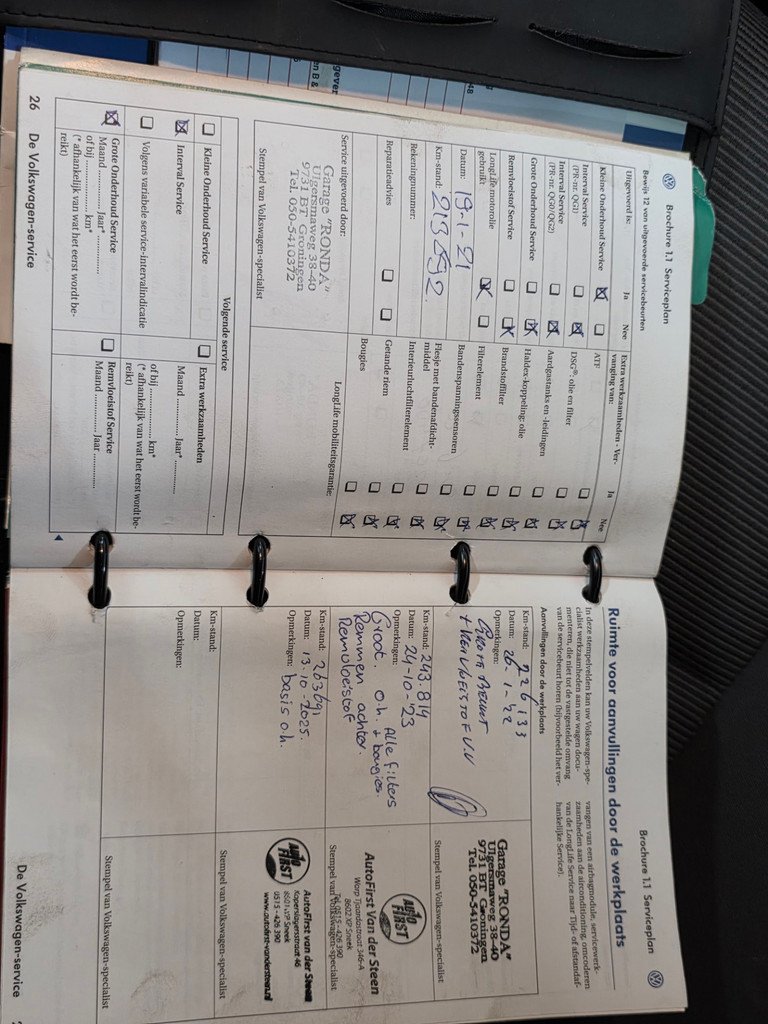 Brochure 1.1 Serviceplan
Bewijs 12 van uitgevoerde servicebeurten
Uitgevoerd is: Ja Nee
Kleine Onderhoud Service
Interval Service
(PR-nr. QG1)
Interval Service
(PR-nr. QG0/QG2)
Grote Onderhoud Service
Remvloeistof Service
LongLife motorolie
gebruikt:
Datum: 19-1-21
Km-stand: 213892.
Rekeningnummer:
Reparatieadvies
Service uitgevoerd door:
Garage "RONDA"
Ulgersmaweg 38-40
9731 BT Groningen
Tel. 050-5410372
Stempel van Volkswagen-specialist
Extra werkzaamheden - Ver-
vanging van: Ja Nee
ATF
DSG®: olie en filter
Aardgastanks en -leidingen
Haldex-koppeling: olie
Brandstoffilter
Filterelement
Bandenspanningssensoren
Flesje met bandenafdicht-
middel
Interieurluchtfilterelement
Getande riem
Bougies
LongLife mobiliteitsgarantie:
Volgende service
Kleine Onderhoud Service
Interval Service
Volgens variabele service-intervalindicatie
Grote Onderhoud Service
Maand Jaar*
of bij km*
(* afhankelijk van wat het eerst wordt be-
reikt)
Extra werkzaamheden
Maand Jaar*
of bij km*
(* afhankelijk van wat het eerst wordt be-
reikt)
Remvloeistof Service
Maand Jaar
26 De Volkswagen-service
Brochure 1.1 Serviceplan
Ruimte voor aanvullingen door de werkplaats
In deze stempelvelden kan uw Volkswagen-spe-
cialist werkzaamheden aan uw wagen docu-
menteren, die niet tot de vastgestelde omvang
van de servicebeurt horen (bijvoorbeeld het ver-
vangen van een airbagmodule, servicewerk-
zaamheden aan de airconditioning, omcoderen
van de LongLife Service naar Tijd- of afstandaf-
hankelijke Service).
Aanvullingen door de werkplaats
Km-stand: 226133
Datum: 26-1-22
Opmerkingen:
Grote Beurt
+ Remvloeistof V.V
Garage "RONDA"
Ulgersmaweg 38-40
9731 BT Groningen
Tel. 050-5410372
Stempel van Volkswagen-specialist
Km-stand: 243.814
Datum: 24-10-'23
Opmerkingen: Alle filters
Groot. o.h. + bougies.
Remmen achter.
Remvloeistof
Auto FIRST
AutoFirst Van der Steen
Worp Tjaardastraat 346-A
8602 XP Sneek
Tel. 0515-426 390
Stempel van Volkswagen-specialist
Km-stand: 263691
Datum: 13-10-2025.
Opmerkingen: basis o.h.
Auto FIRST
AutoFirst van der Steen
Koperslagersstraat 46
8601 WP Sneek
0515-426 390
www.autofirst-vandersteen.nl
Stempel van Volkswagen-specialist
Km-stand:
Datum:
Opmerkingen:
Stempel van Volkswagen-specialist
De Volkswagen-service